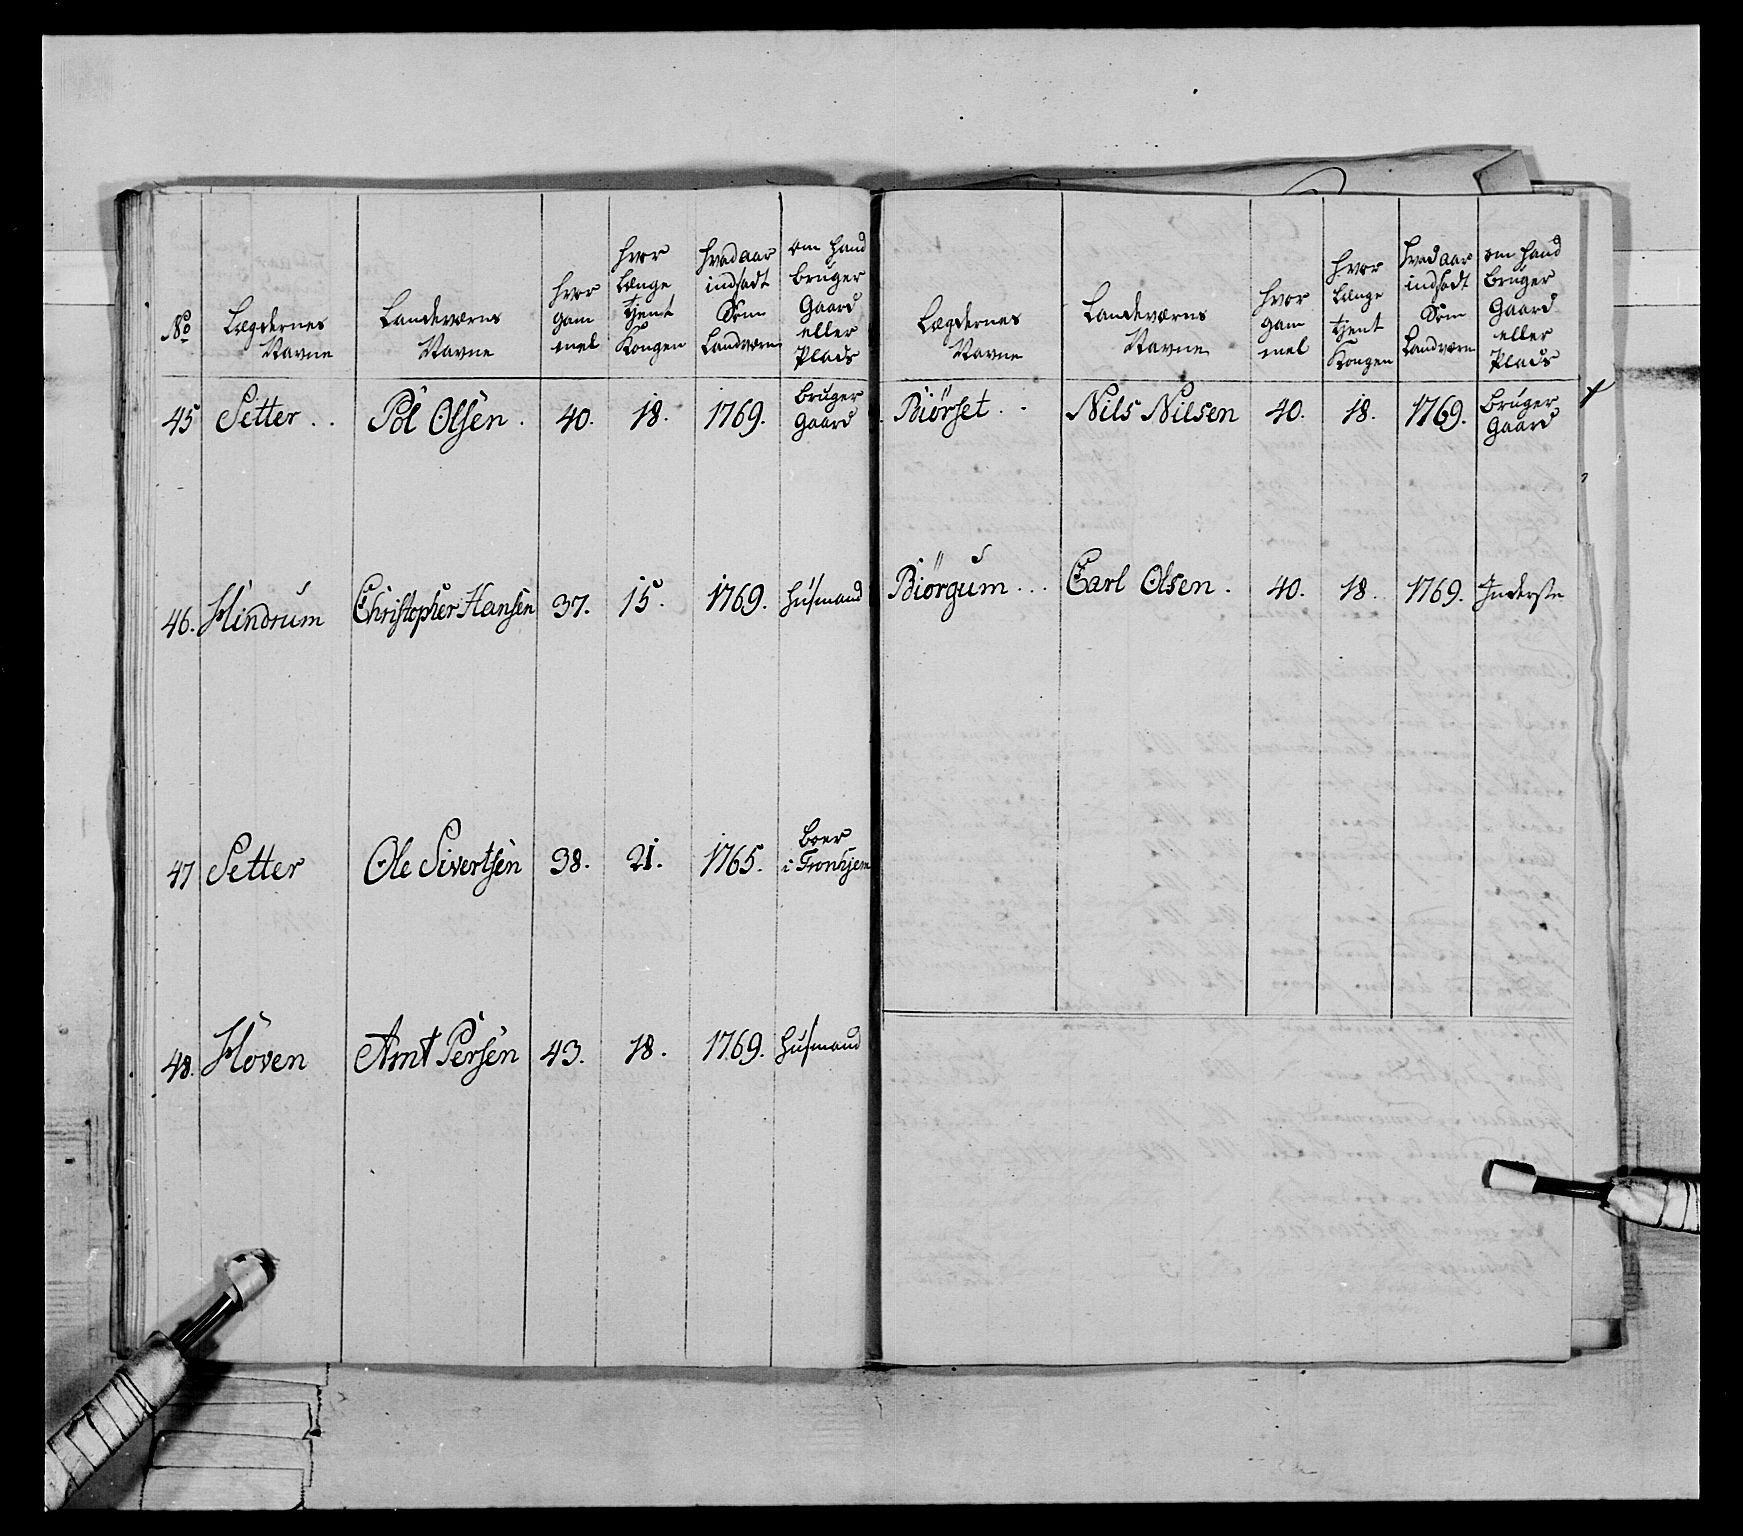 No Lægdernes Navne | Landeværns Navne | hvor gammel | hvor længe tjent Kongen | hvad aar indsadt Som Landværn | om hand bruger Gaard eller Plads
45 Setter . . Pol Olsen . 40. 18. 1769. bruger Gaard
46. Hindrum Christopher Hansen 37. 15. 1769. Huusmand
47 Setter Ole Sivertsen 38. 21. 1765. boer i Tronhjem
48. Hoven Arnt Persen 43. 18. 1769. Huusmand
Lægdernes Navne | Landeværns Navne | hvor gammel | hvor længe tjent Kongen | hvad aar indsadt Som Landværn | om hand bruger Gaard eller Plads
Biörset . . Nils Nilsen 40. 18. 1769. bruger Gaard
Biörgum . . . Carl Olsen . 40. 18. 1769. Inderste